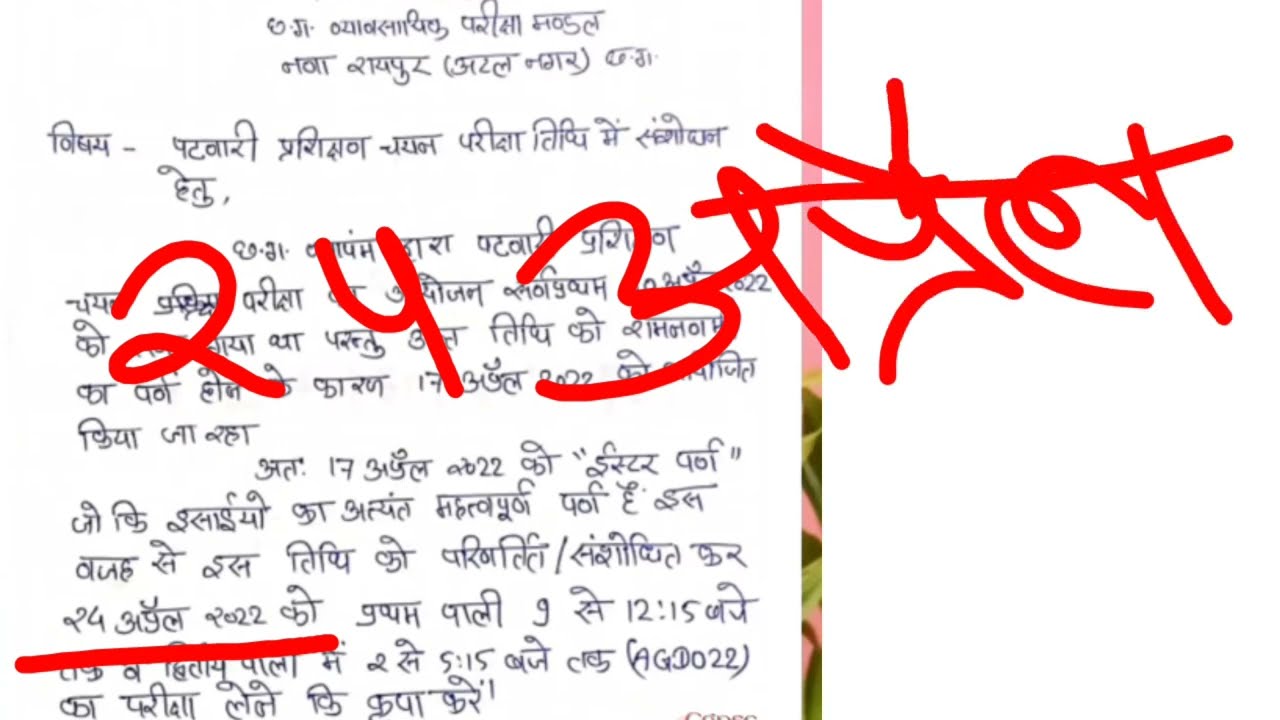 छ.ग. व्यावसायिक परीक्षा मण्डल
नवा रायपुर (अटल नगर) छ.ग.
विषय - पटवारी प्रशिक्षण चयन परीक्षा तिथि में संशोधन
हेतु,
छ.ग. व्यापंम द्वारा पटवारी प्रशिक्षण
चयन परीक्षा का आयोजन सर्वप्रथम अप्रैल 2022
को गया था परन्तु उक्त तिथि को रामनवमी
का पर्व होने के कारण 17 अप्रैल 2022 को आयोजित
किया जा रहा
अतः 17 अप्रैल 2022 को "ईस्टर पर्व"
जो कि इसाईयो का अत्यंत महत्वपूर्ण पर्व हैं इस
वजह से इस तिथि को परिवर्तित/संशोधित कर
२४ अप्रैल २०22 को प्रथम पाली 9 से 12:15 बजे
तक व द्वितीय पाली में 2 से 5:15 बजे तक (AGDO22)
का परीक्षा लेने कि कृपा करें।
२४ अप्रेल